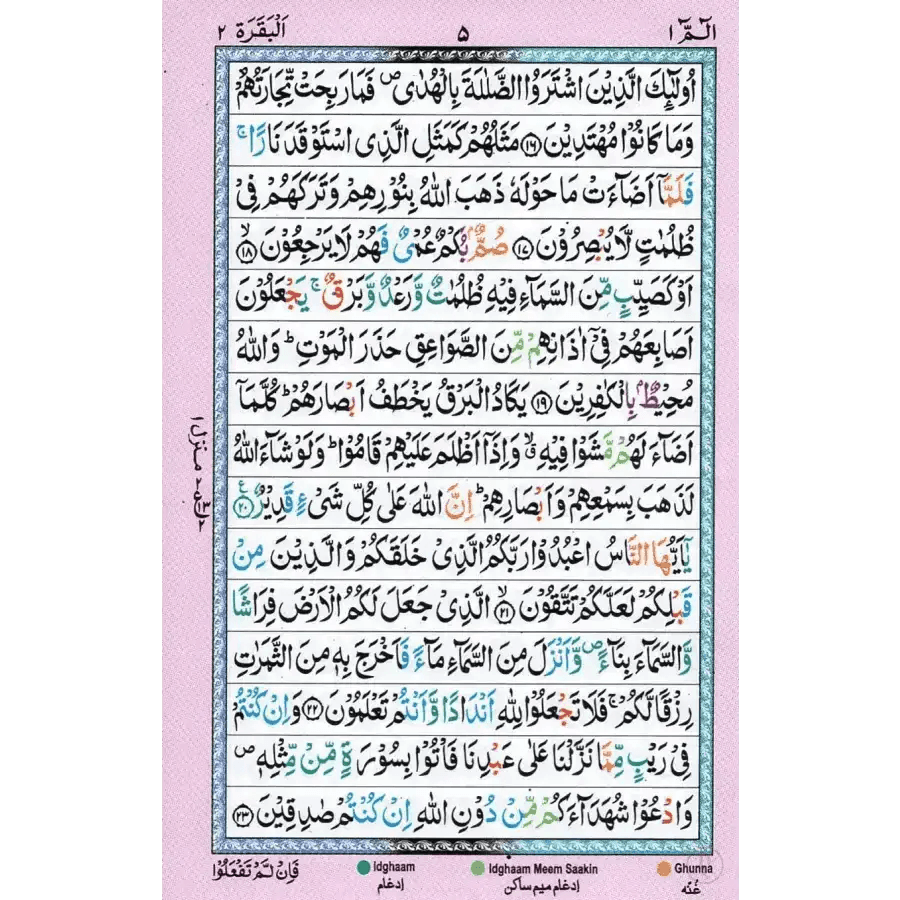 الٓمّٓ ١ ٥ اَلْبَقَرَة ٢
اُولٰٓئِكَ الَّذِيْنَ اشْتَرَوُا الضَّلٰلَةَ بِالْهُدٰى ۪ فَمَا رَبِحَتْ تِّجَارَتُهُمْ
وَمَا كَانُوْا مُهْتَدِيْنَ ﴿١٦﴾ مَثَلُهُمْ كَمَثَلِ الَّذِى اسْتَوْقَدَ نَارًا ۚ
فَلَمَّاۤ اَضَآءَتْ مَا حَوْلَهٗ ذَهَبَ اللّٰهُ بِنُوْرِهِمْ وَتَرَكَهُمْ فِىْ
ظُلُمٰتٍ لَّا يُبْصِرُوْنَ ﴿١٧﴾ صُمٌّۢ بُكْمٌ عُمْىٌ فَهُمْ لَا يَرْجِعُوْنَ ۙ﴿١٨﴾
اَوْ كَصَيِّبٍ مِّنَ السَّمَآءِ فِيْهِ ظُلُمٰتٌ وَّرَعْدٌ وَّبَرْقٌ ۚ يَجْعَلُوْنَ
اَصَابِعَهُمْ فِىْۤ اٰذَانِهِمْ مِّنَ الصَّوَاعِقِ حَذَرَ الْمَوْتِ ؕ وَاللّٰهُ
مُحِيْطٌۢ بِالْكٰفِرِيْنَ ﴿١٩﴾ يَكَادُ الْبَرْقُ يَخْطَفُ اَبْصَارَهُمْ ؕ كُلَّمَاۤ
اَضَآءَ لَهُمْ مَّشَوْا فِيْهِ ۙ وَاِذَاۤ اَظْلَمَ عَلَيْهِمْ قَامُوْا ؕ وَلَوْ شَآءَ اللّٰهُ
لَذَهَبَ بِسَمْعِهِمْ وَاَبْصَارِهِمْ ؕ اِنَّ اللّٰهَ عَلٰى كُلِّ شَىْءٍ قَدِيْرٌ ﴿٢٠﴾ ع
يٰۤاَيُّهَا النَّاسُ اعْبُدُوْا رَبَّكُمُ الَّذِىْ خَلَقَكُمْ وَالَّذِيْنَ مِنْ
قَبْلِكُمْ لَعَلَّكُمْ تَتَّقُوْنَ ۙ﴿٢١﴾ الَّذِىْ جَعَلَ لَكُمُ الْاَرْضَ فِرَاشًا
وَّالسَّمَآءَ بِنَآءً ۪ وَّاَنْزَلَ مِنَ السَّمَآءِ مَآءً فَاَخْرَجَ بِهٖ مِنَ الثَّمَرٰتِ
رِزْقًا لَّكُمْ ۚ فَلَا تَجْعَلُوْا لِلّٰهِ اَنْدَادًا وَّاَنْتُمْ تَعْلَمُوْنَ ﴿٢٢﴾ وَاِنْ كُنْتُمْ
فِىْ رَيْبٍ مِّمَّا نَزَّلْنَا عَلٰى عَبْدِنَا فَاْتُوْا بِسُوْرَةٍ مِّنْ مِّثْلِهٖ ۪
وَادْعُوْا شُهَدَآءَكُمْ مِّنْ دُوْنِ اللّٰهِ اِنْ كُنْتُمْ صٰدِقِيْنَ ﴿٢٣﴾
منزل ١
فَاِنْ لَّمْ تَفْعَلُوْا
Idghaam Idghaam Meem Saakin Ghunna
ادغام ادغام ميم ساكن غنّه